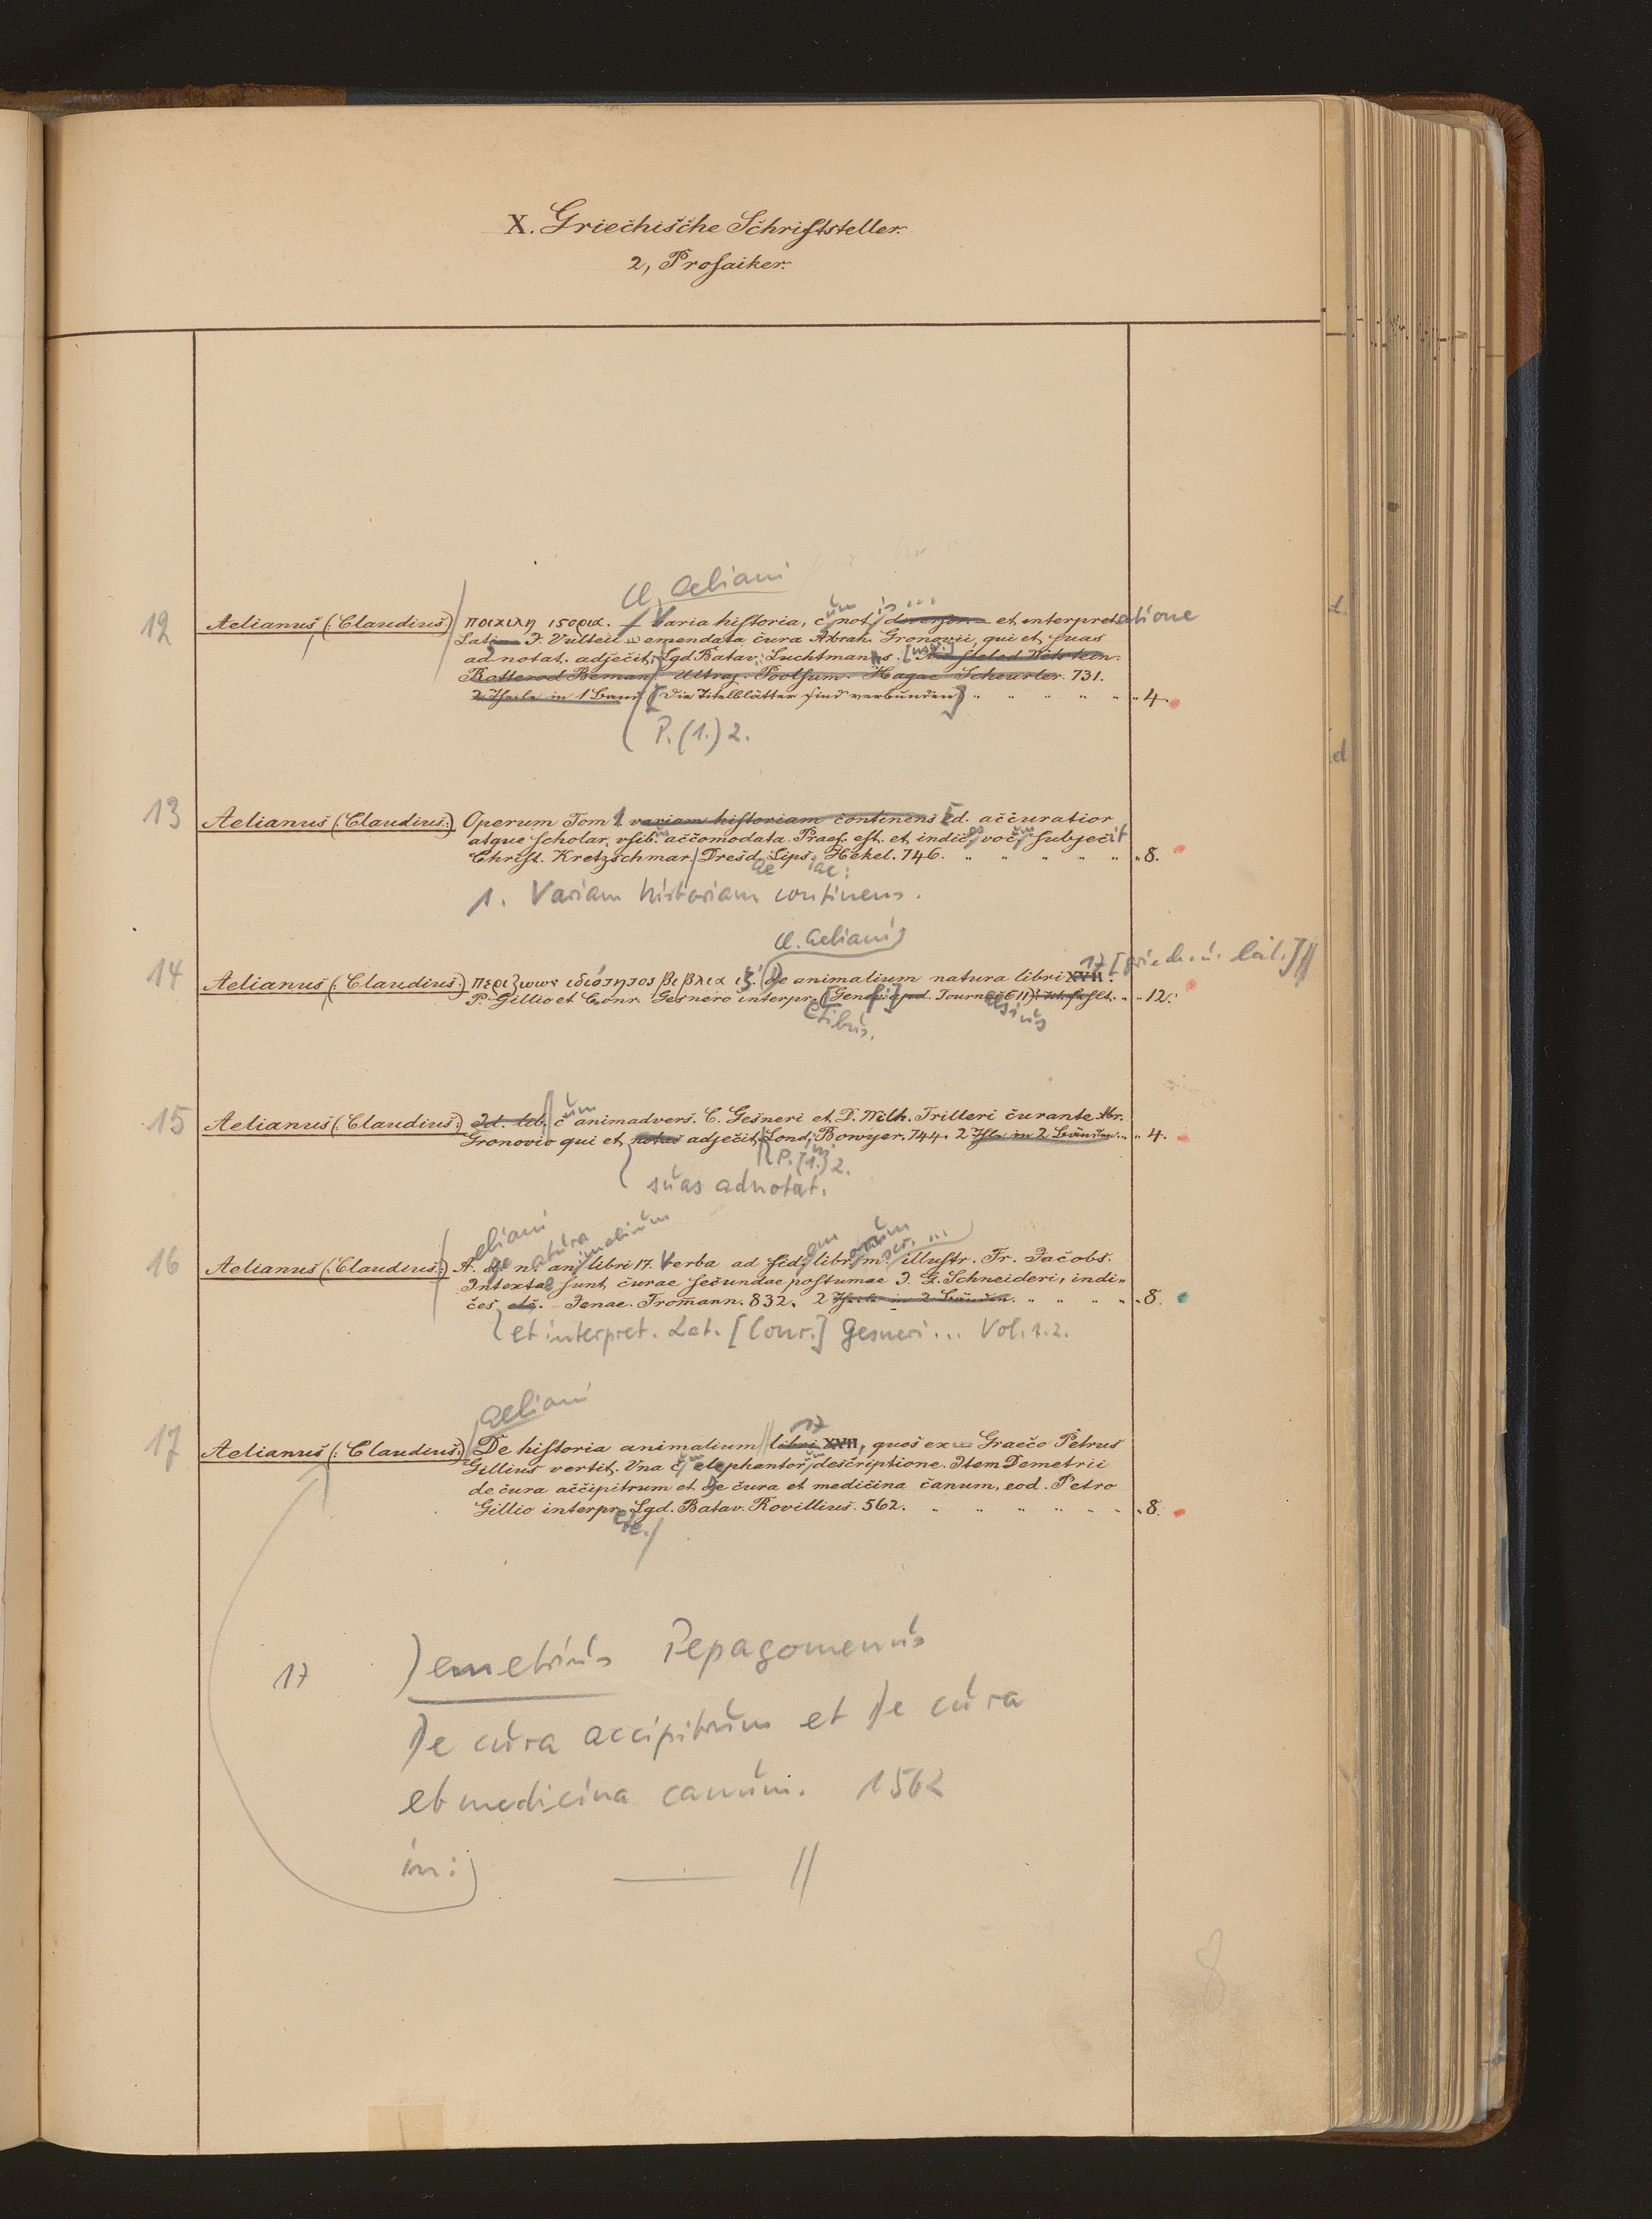 X. Griechische Schriftsteller.
2, Prosaiker.
Cl. Aeliani
12 Aelianus (: Claudius:) ποικιλη ιςορια. Varia historia, cum notis ... diverson. et interpretatione
Lati J. Vulteii emendata cura Abrah. Gronovii, qui et suas
adnotat. adjecit, Lgd Batav. Luchtmanns. [usw.] Amstelod Wetstein.
Rotterod Beman Ultraj. Poolsum. Hagae Scheurler. 731.
2 Theile in 1 Band [Die Titelblätter sind verbunden] " " " " " 4.
P. (1.) 2.
13 Aelianus (: Claudius:) Operum Tom 1. variam historiam continens Ed. accuratior
atque scholar. usib. accomodata. Praef. est. et indices vocum subjecit
Christ. Kretzschmar. Dresdae Lipsiae: Hekel. 746. " " " " " 8.
1. Variam historiam continens.
Cl. Aeliani
14 Aelianus (: Claudius:) περι ζωων ιδιοτητος βιβλια ιζ. De animalium natura libri XVII. 17 [griech. u. lat.]
P. Gillio et Conr. Gesnero interpr. [Genf] apud. Tournaesius 611. Tit. fehlt. " " 12.
etibus.
15 Aelianus (: Claudius:) Id. lib. cum animadvers. C. Gesneri et D. Wilh. Trilleri curante Abr.
Gronovio qui et notas adjecit, Lond. Bowyer. 744. 2 Thle in 2 Bänden. " " 4.
P. (1.) 2.
suas adnotat.
16 Aelianus (: Claudius:) Aeliani de natura animalium libri 17. Verba ad fidem librorum m. scr. ... illustr. Fr. Jacobs.
Intextae sunt curae secundae postumae J. G. Schneideri, indi-
ces etc. Jenae. Fromann. 832. 2 Theile in 2 Bänden. " " " " 8.
et interpret. Lat. [Conr.] Gesneri ... Vol. 1.2.
Aeliani
17 Aelianus (: Claudius:) De historia animalium libri XVII, 17 quos ex Graeco Petrus
Gillius vertit. Vna cum elephantorum descriptione. Item Demetrii
de cura accipitrum et de cura et medicina canum, eod. Petro
Gillio interprete. Lgd. Batav. Rovillius. 562. " " " " 8.
17 Demetrius Pepagomenus
De cura accipitrum et De cura
et medicina canum. 1562
in: — //
8